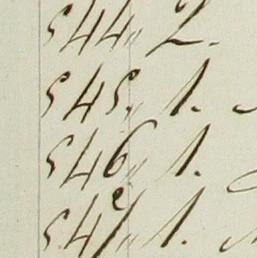 544. 2.
545. 1.
546. 1.
547. 1.